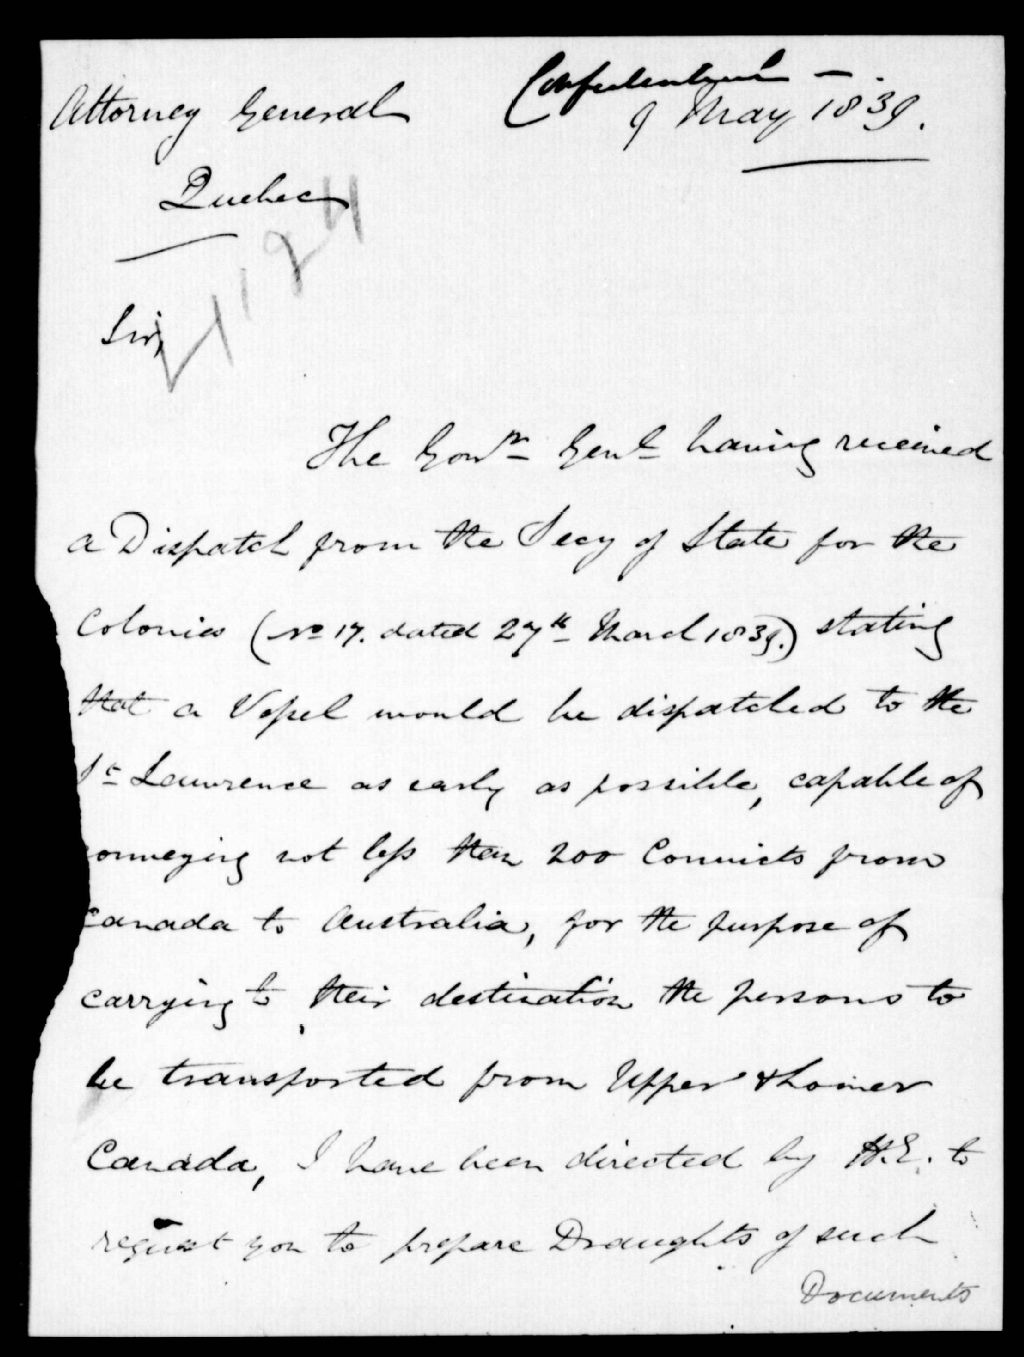 Confidential —.
Attorney General
9 May 1839.
Quebec
Sir,
The Govr Genl having received
a Dispatch from the Secy of State for the
Colonies (No 17. dated 27th March 1839.) stating
that a Vessel would be dispatched to the
St Lawrence as early as possible, capable of
conveying not less than 200 Convicts from
Canada to Australia, for the purpose of
carrying to their destination the persons to
be transported from Upper & Lower
Canada, I have been directed by H.E. to
request you to prepare Draughts of such
Documents